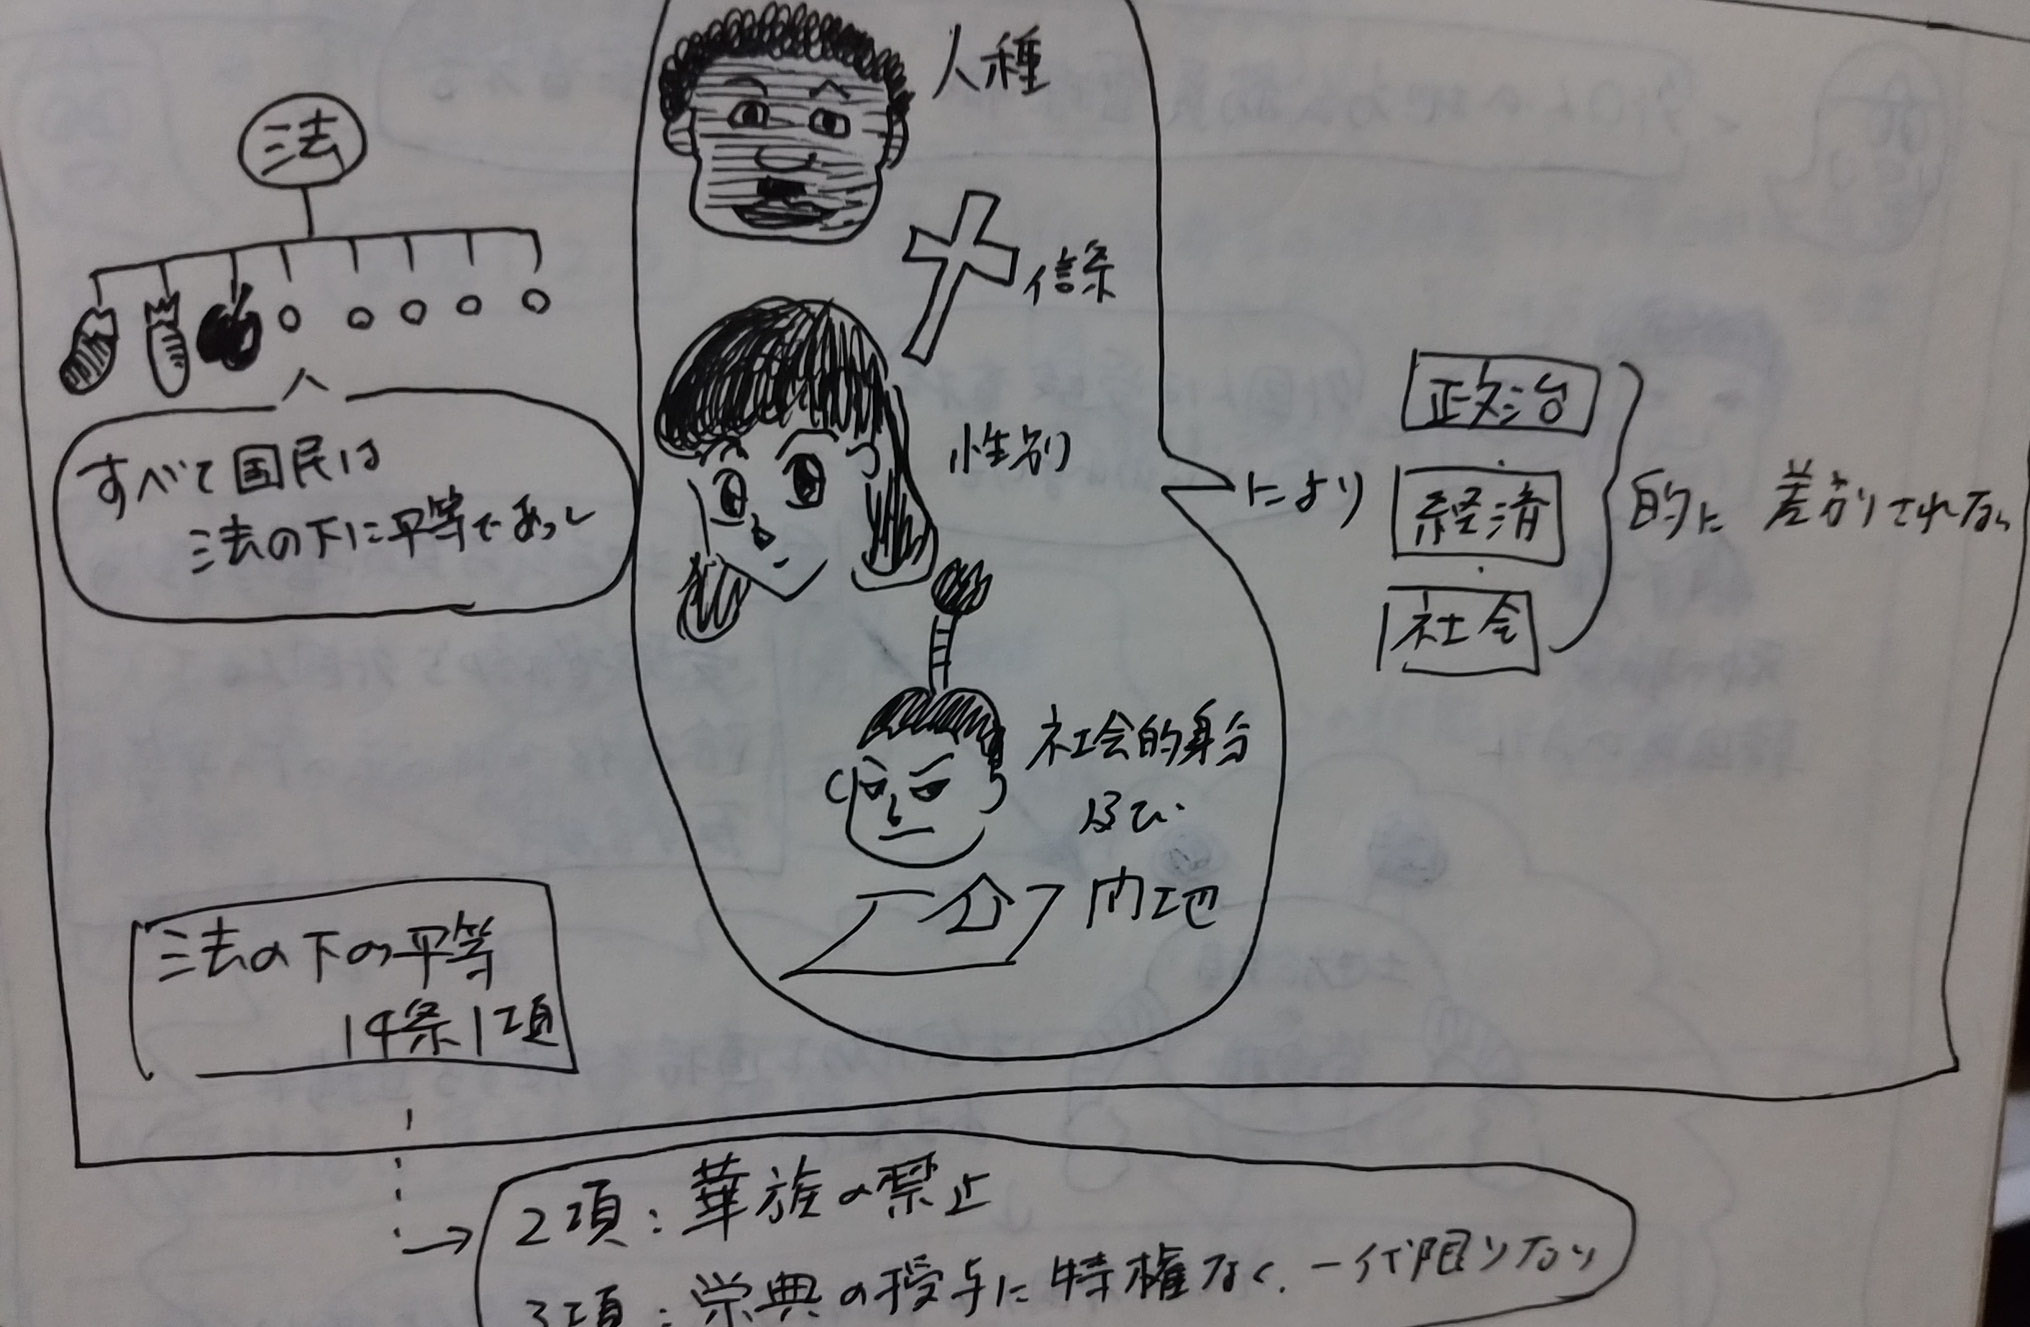 法
すべて国民は
法の下に平等であって
人種
信条
性別
社会的身分
及び
門地
により
政治
経済
社会
的に 差別されない
法の下の平等
14条1項
2項:華族の禁止
3項:栄典の授与に特権なく、一代限りなり